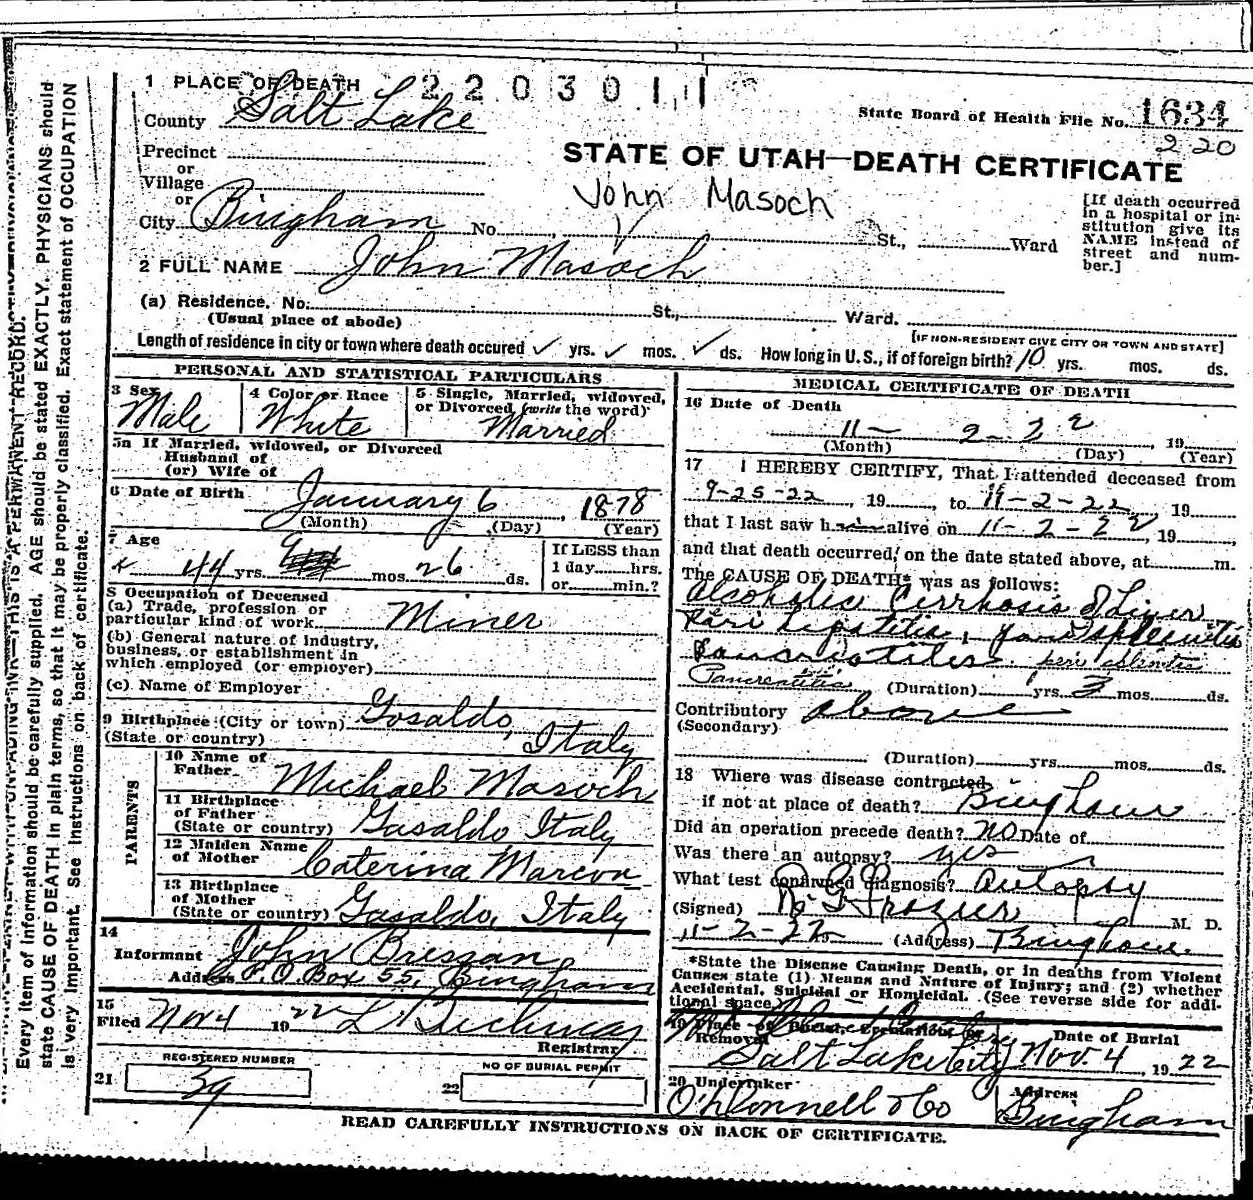 1 PLACE OF DEATH 2203011
County Salt Lake
State Board of Health File No. 1634
220
Precinct
or
Village
or
City Bingham No. St., Ward
STATE OF UTAH—DEATH CERTIFICATE
John Masoch
[If death occurred in a hospital or institution give its NAME instead of street and number.]
2 FULL NAME John Masoch
(a) Residence. No. St., Ward.
(Usual place of abode)
[IF NON-RESIDENT GIVE CITY OR TOWN AND STATE]
Length of residence in city or town where death occured ✓ yrs. ✓ mos. ✓ ds. How long in U. S., if of foreign birth? 10 yrs. mos. ds.
PERSONAL AND STATISTICAL PARTICULARS
3 Sex Male
4 Color or Race White
5 Single, Married, widowed, or Divorced (write the word) Married
5a If Married, widowed, or Divorced
Husband of
(or) Wife of
6 Date of Birth January 6, 1878
(Month) (Day) (Year)
7 Age
44 yrs. 9 mos. 26 ds.
If LESS than
1 day hrs.
or min.?
8 Occupation of Deceased
(a) Trade, profession or
particular kind of work Miner
(b) General nature of industry,
business, or establishment in
which employed (or employer)
(c) Name of Employer
9 Birthplace (City or town) Gosaldo,
(State or country) Italy
PARENTS
10 Name of
Father Michael Masoch
11 Birthplace
of Father
(State or country) Gosaldo Italy
12 Maiden Name
of Mother Caterina Marcon
13 Birthplace
of Mother
(State or country) Gosaldo, Italy
14
Informant John Bressan
Address P.O. Box 55, Bingham
15
Filed Nov 4 19 22
Registrar
REGISTERED NUMBER
21 39
NO OF BURIAL PERMIT
22
MEDICAL CERTIFICATE OF DEATH
16 Date of Death
11- 2- 22, 19
(Month) (Day) (Year)
17 I HEREBY CERTIFY, That I attended deceased from
9-25-22, 19, to 11-2-22, 19
that I last saw him alive on 11-2-22, 19,
and that death occurred, on the date stated above, at m.
The CAUSE OF DEATH* was as follows:
Alcoholic Cirrhosis of Liver
Peri hepatitis,
Pancreatitis
(Duration) yrs. 3 mos. ds.
Contributory above
(Secondary)
(Duration) yrs. mos. ds.
18 Where was disease contracted
if not at place of death? Bingham
Did an operation precede death? no Date of
Was there an autopsy? yes
What test confirmed diagnosis? autopsy
(Signed) Frazier M. D.
11-2-22 (Address) Bingham.
*State the Disease Causing Death, or in deaths from Violent
Causes state (1) Means and Nature of Injury; and (2) whether
Accidental, Suicidal or Homicidal. (See reverse side for addi-
tional space.)
19 Place of Burial, Cremation, or
Removal Salt Lake City
Date of Burial
Nov. 4, 19 22
20 Undertaker
O'Donnell & Co
Address
Bingham
READ CAREFULLY INSTRUCTIONS ON BACK OF CERTIFICATE.
Every item of information should be carefully supplied. AGE should be stated EXACTLY. PHYSICIANS should
state CAUSE OF DEATH in plain terms, so that it may be properly classified. Exact statement of OCCUPATION
is very important. See instructions on back of certificate.